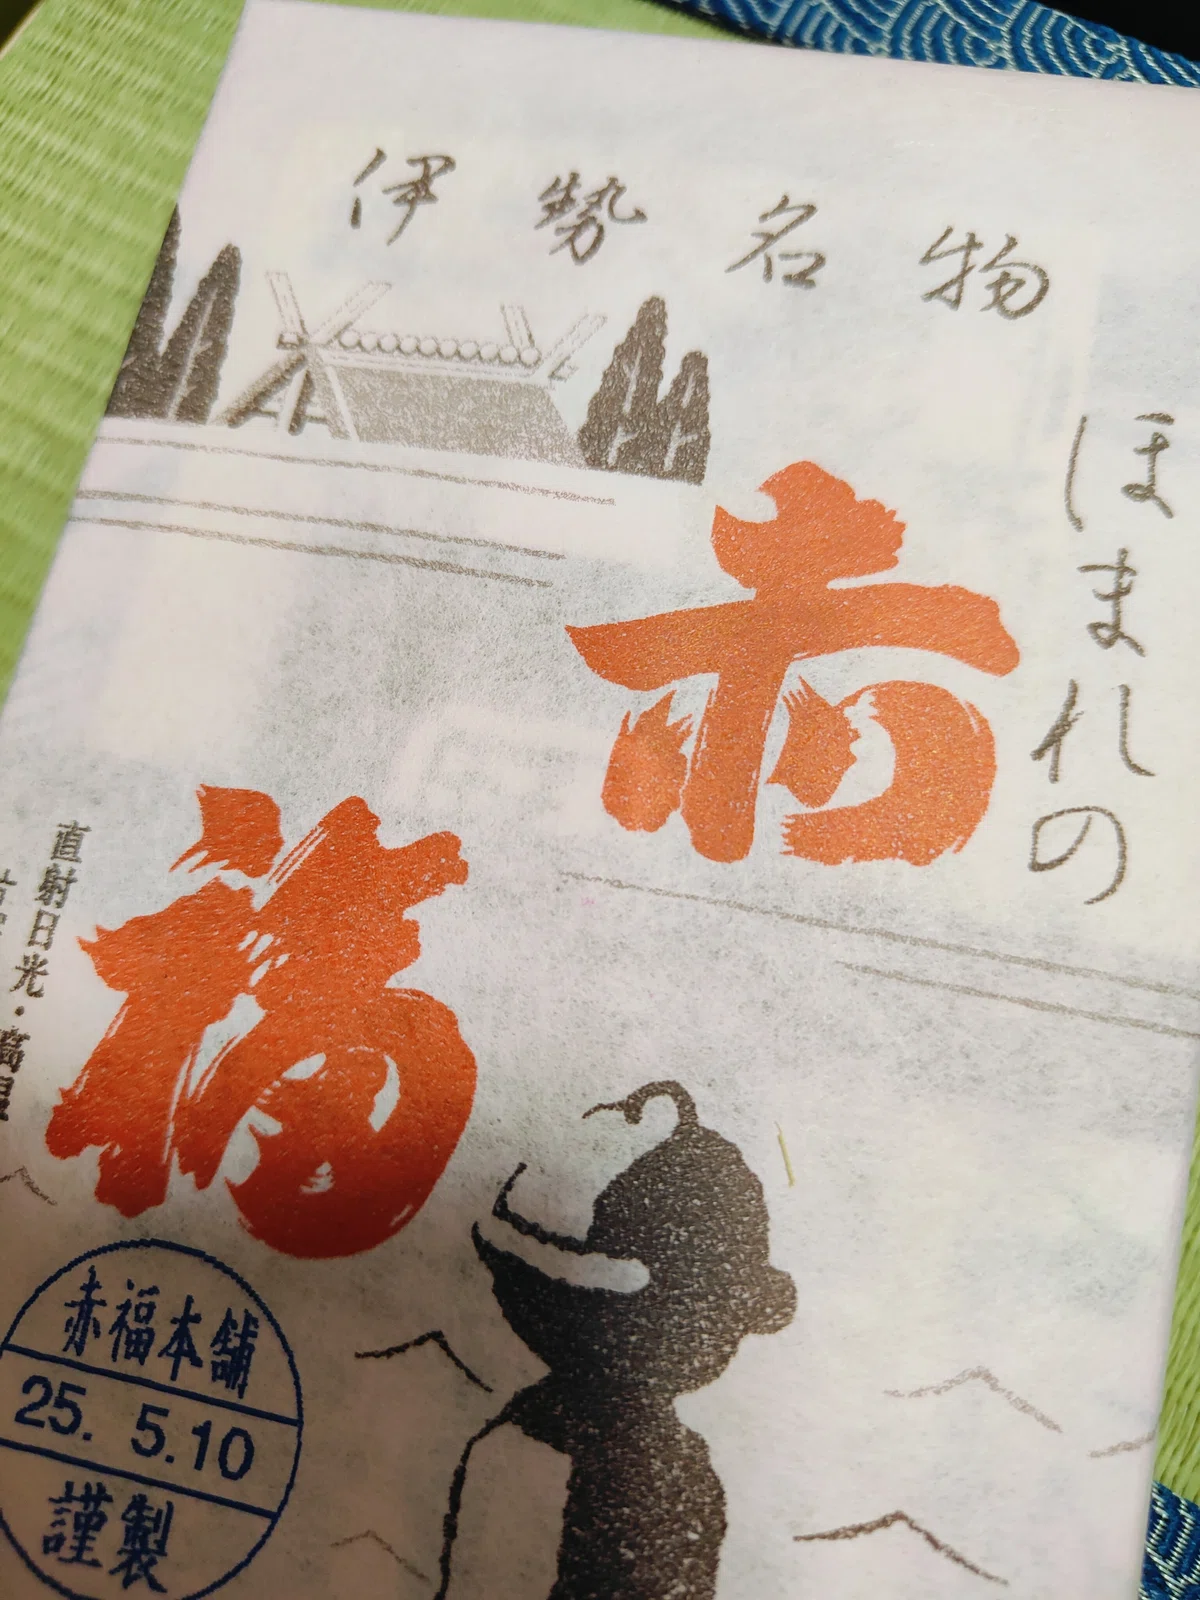 伊勢名物
ほまれの
赤福
直射日光・高温
赤福本舗
25. 5.10
謹製